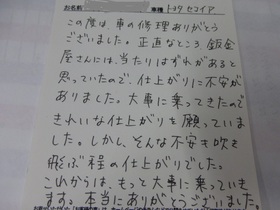 お名前　車種 トヨタ セコイア
この度は、車の修理ありがとう
ございました。正直なところ 鈑金
屋さんには、当たりはずれがあると
思っていたので、仕上がりに不安が
ありました。大事に乗ってきたので
きれいな仕上がりを願っていま
した。しかし、そんな不安も吹き
飛ぶ程の仕上がりでした。
これからは、もっと大事に乗っていき
ます。本当にありがとうございました。